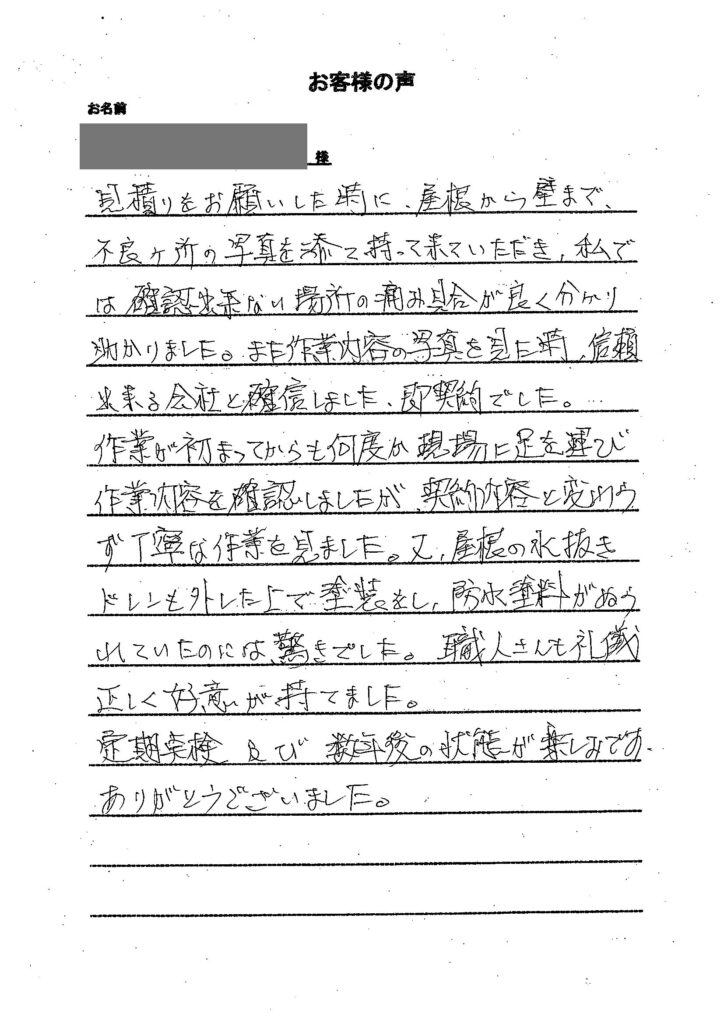 お客様の声
お名前
様
見積りをお願いした時に、屋根から壁まで、
不良ヶ所の写真を添て持って来ていただき、私で
は確認出来ない場所の痛み具合が良く分かり
助かりました。また作業内容の写真を見た時、信頼
出来る会社と確信しました、即契約でした。
作業が初まってからも何度か現場に足を運び
作業内容を確認しましたが、契約内容と変わら
ず丁寧な作業を見ました。又、屋根の水抜き
ドレンも外した上で塗装をし、防水塗料がぬら
れていたのには、驚きでした。職人さんも礼儀
正しく好意が持てました。
定期点検及び数年後の状態が楽しみです、
ありがとうございました。